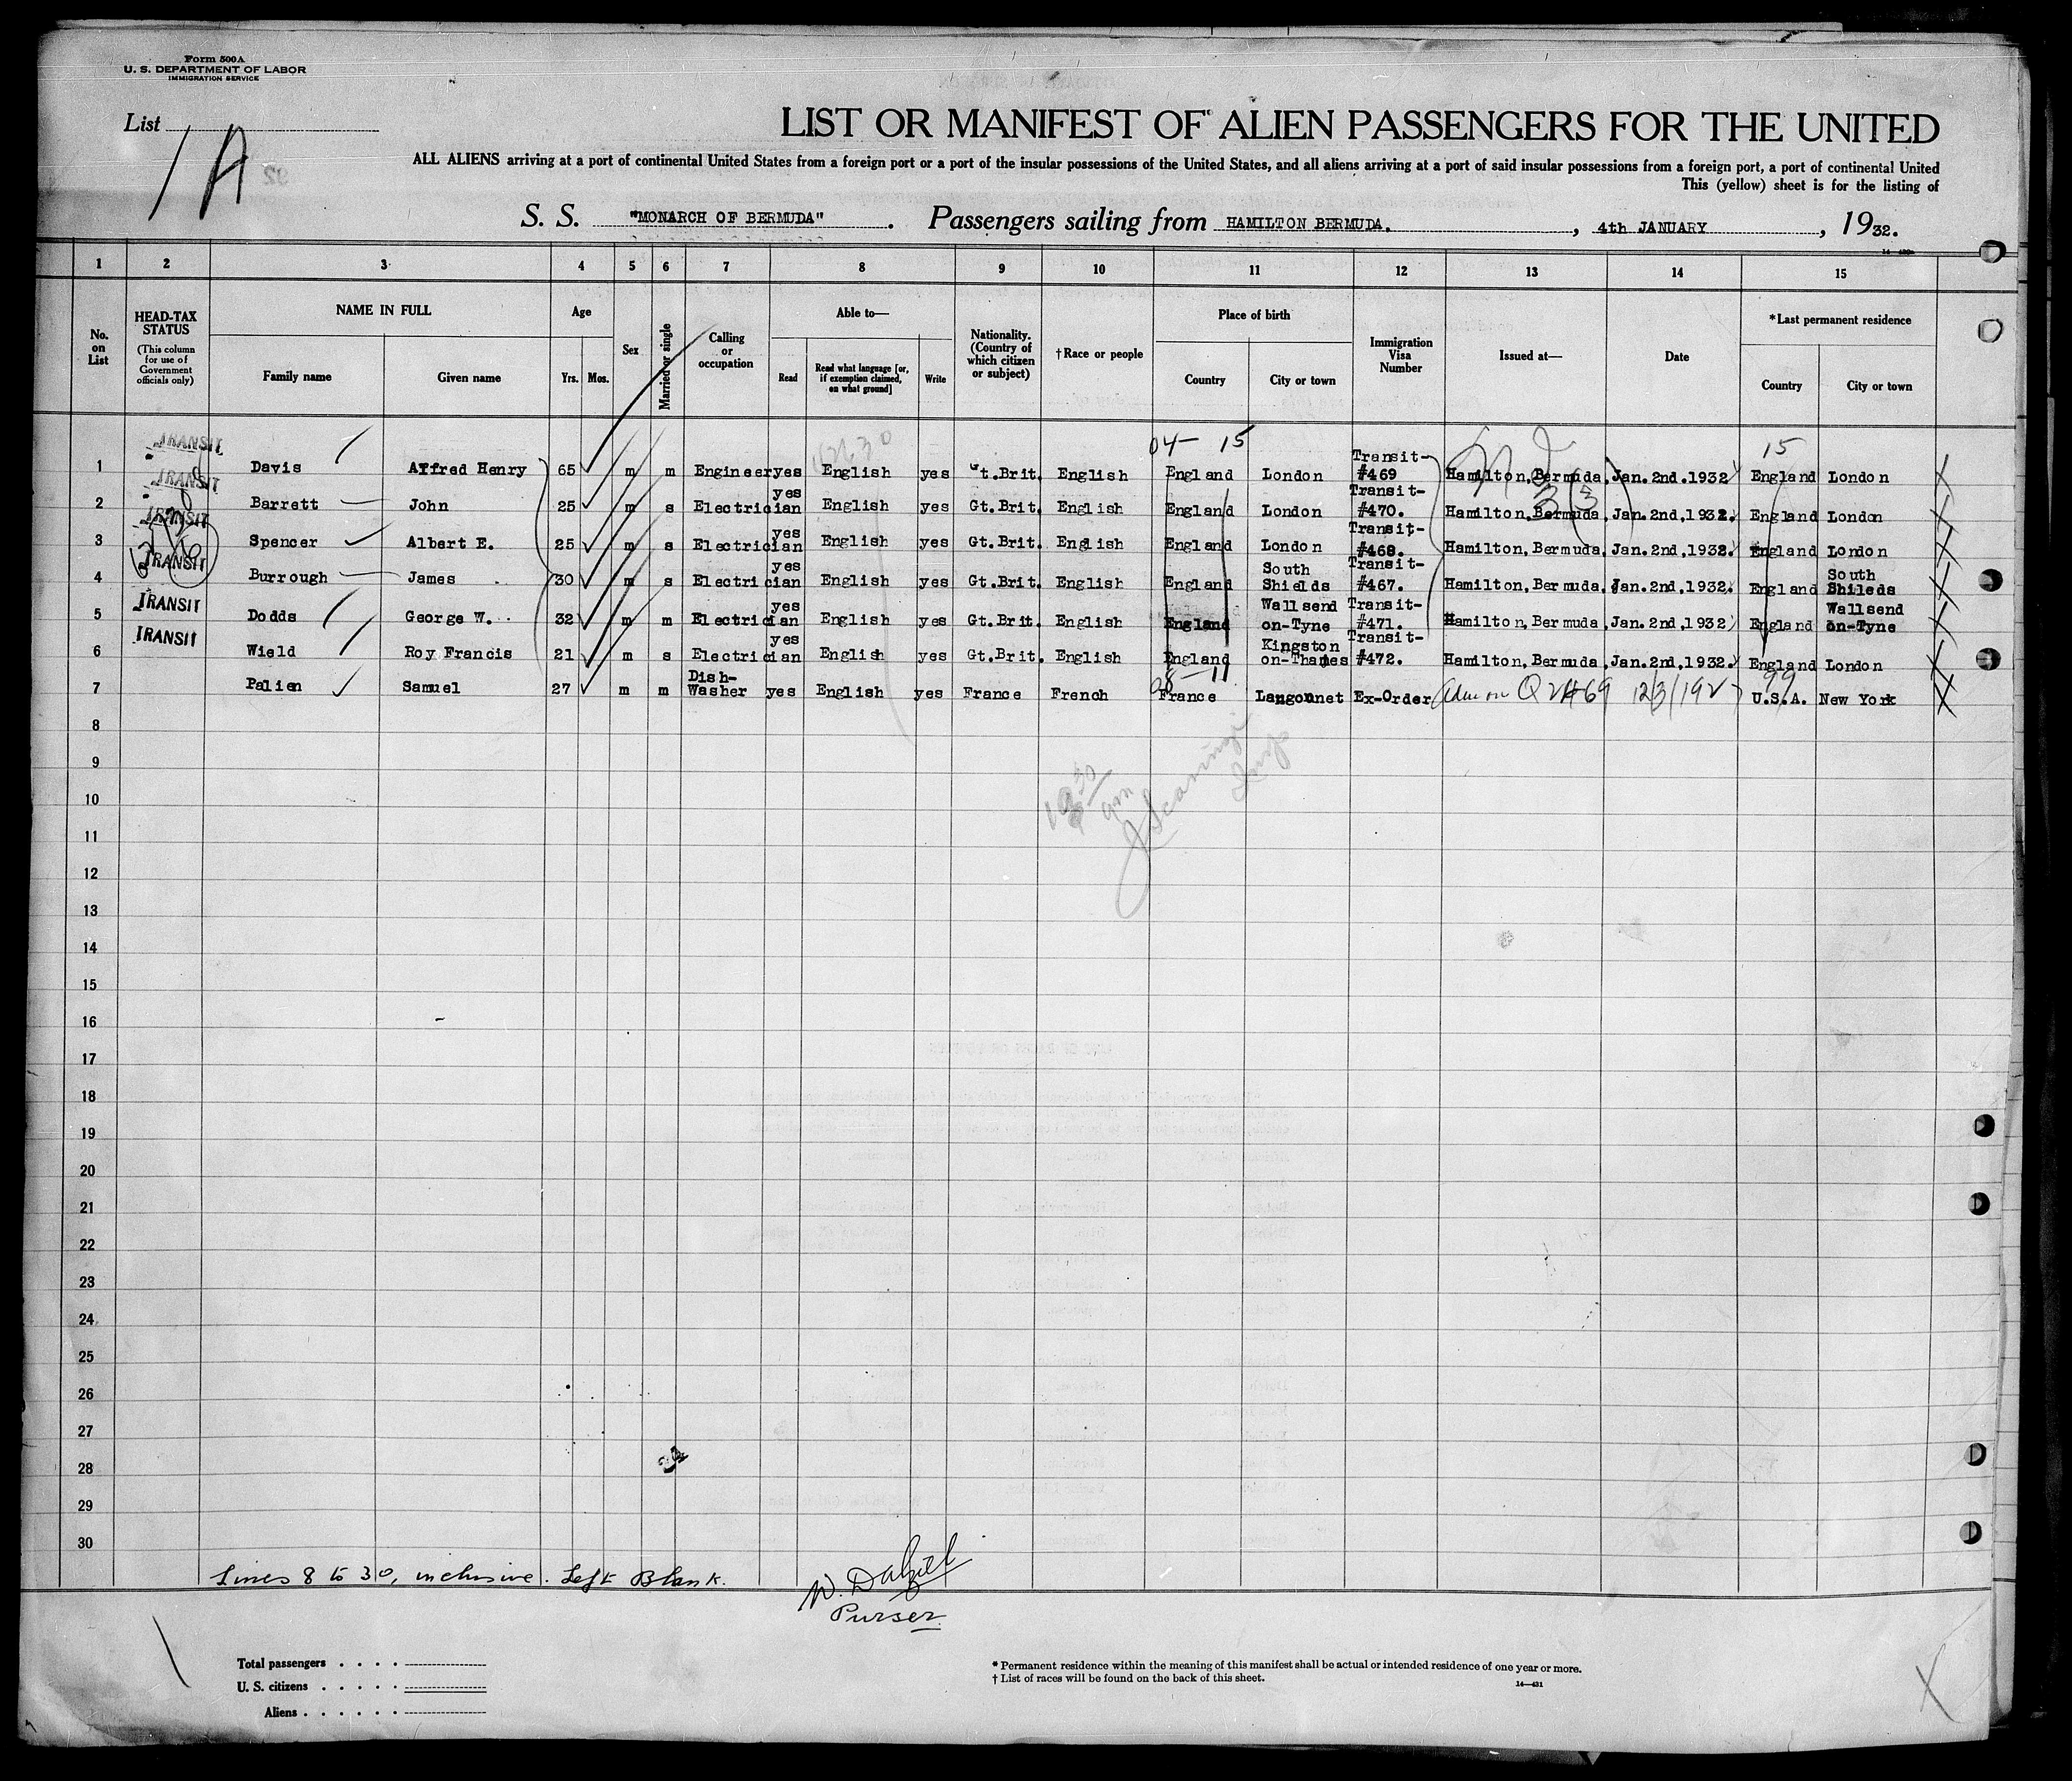 Form 500A
U. S. DEPARTMENT OF LABOR
IMMIGRATION SERVICE
List
1A
LIST OR MANIFEST OF ALIEN PASSENGERS FOR THE UNITED
ALL ALIENS arriving at a port of continental United States from a foreign port or a port of the insular possessions of the United States, and all aliens arriving at a port of said insular possessions from a foreign port, a port of continental United
This (yellow) sheet is for the listing of
S. S. "MONARCH OF BERMUDA". Passengers sailing from HAMILTON BERMUDA., 4th JANUARY, 1932.
1 2 3 4 5 6 7 8 9 10 11 12 13 14 15
No. on List
HEAD-TAX STATUS
(This column for use of Government officials only)
NAME IN FULL
Family name Given name
Age
Yrs. Mos.
Sex
Married or single
Calling or occupation
Able to—
Read
Read what language [or, if exemption claimed, on what ground]
Write
Nationality. (Country of which citizen or subject)
†Race or people
Place of birth
Country City or town
Immigration Visa Number
Issued at—
Date
*Last permanent residence
Country City or town
04- 15 15
1 TRANSIT Davis Alfred Henry 65 m m Engineer yes English yes Gt.Brit. English England London Transit-#469 Hamilton,Bermuda, Jan.2nd.1932 England London
2 TRANSIT Barrett John 25 m s Electrician yes English yes Gt.Brit. English England London Transit-#470. Hamilton,Bermuda, Jan.2nd,1932. England London
3 TRANSIT Spencer Albert E. 25 m s Electrician yes English yes Gt.Brit. English England London Transit-#468. Hamilton,Bermuda, Jan.2nd,1932. England London
4 TRANSIT Burrough James 30 m s Electrician yes English yes Gt.Brit. English England South Shields Transit-#467. Hamilton,Bermuda, Jan.2nd,1932. England South Shileds
5 TRANSIT Dodds George W. 32 m m Electrician yes English yes Gt.Brit. English England Wallsend on-Tyne Transit-#471. Hamilton,Bermuda, Jan.2nd,1932 England Wallsend on-Tyne
6 TRANSIT Wield Roy Francis 21 m s Electrician yes English yes Gt.Brit. English England Kingston on-Thames Transit-#472. Hamilton,Bermuda, Jan.2nd,1932. England London
08-11 99
7 Palien Samuel 27 m m Dish-Washer yes English yes France French France Langonnet Ex-Order U.S.A. New York
8
9
10
11
12
13
14
15
16
17
18
19
20
21
22
23
24
25
26
27
28
29
30
Lines 8 to 30, inclusive. Left Blank.
W. Dalziel
Purser
Total passengers
U. S. citizens
Aliens
* Permanent residence within the meaning of this manifest shall be actual or intended residence of one year or more.
† List of races will be found on the back of this sheet.
14—431